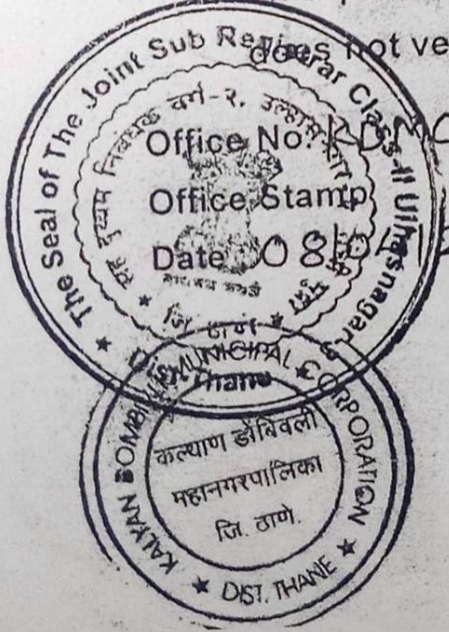 not ve
The Seal of The Joint Sub Registrar Class-II Ulhasnagar
सह दुय्यम निबंधक वर्ग-२, उल्हासनगर
Office No. KDMC
Office Stamp
Date 08/0
जि ठाणे
Dist. Thane
KALYAN DOMBIVLI MUNICIPAL CORPORATION
कल्याण डोंबिवली
महानगरपालिका
जि. ठाणे.
DIST. THANE